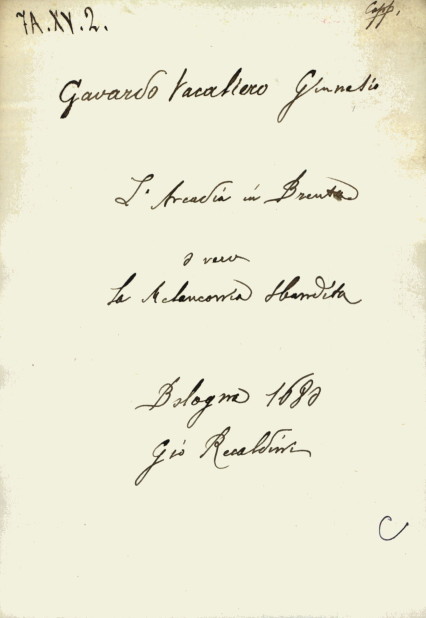 7A.XV.2.
Capp.
Gavardo Vacaliero Ginnesio
L'Arcadia in Brenta
o vero
la Melanconia sbandita
Bologna 1680
Gio Recaldini
C